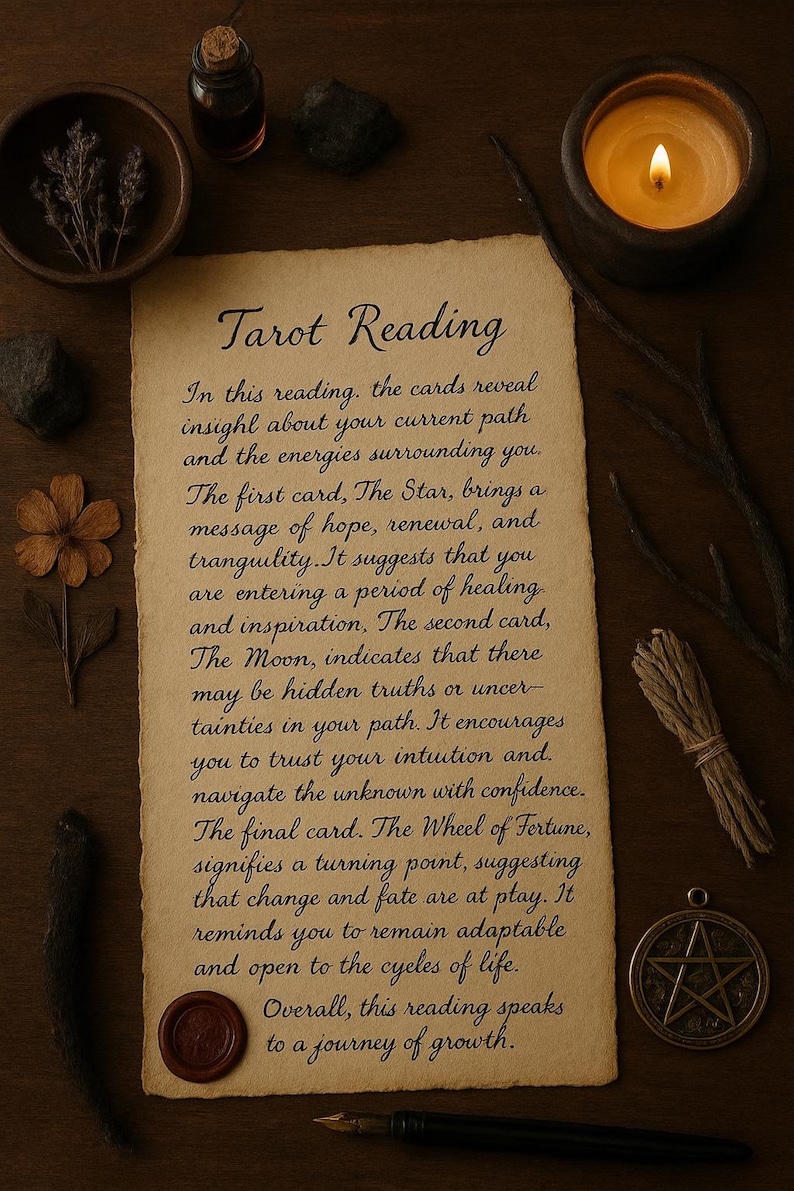 Tarot Reading
In this reading. the cards reveal
insighl about your current path
and the energies surrounding you.
The first card, The Star, brings a
message of hope, renewal, and
tranquility. It suggests that you
are entering a period of healing
and inspiration, The second card,
The Moon, indicates that there
may be hidden truths or uncer-
tainties in your path. It encourages
you to trust your intuition and.
navigate the unknown with confidence.
The final card. The Wheel of Fertune,
signifies a turning point, suggesting
that change and fate are at play. It
reminds you to remain adaptable
and open to the cycles of life.
Overall, this reading speaks
to a journey of growth.